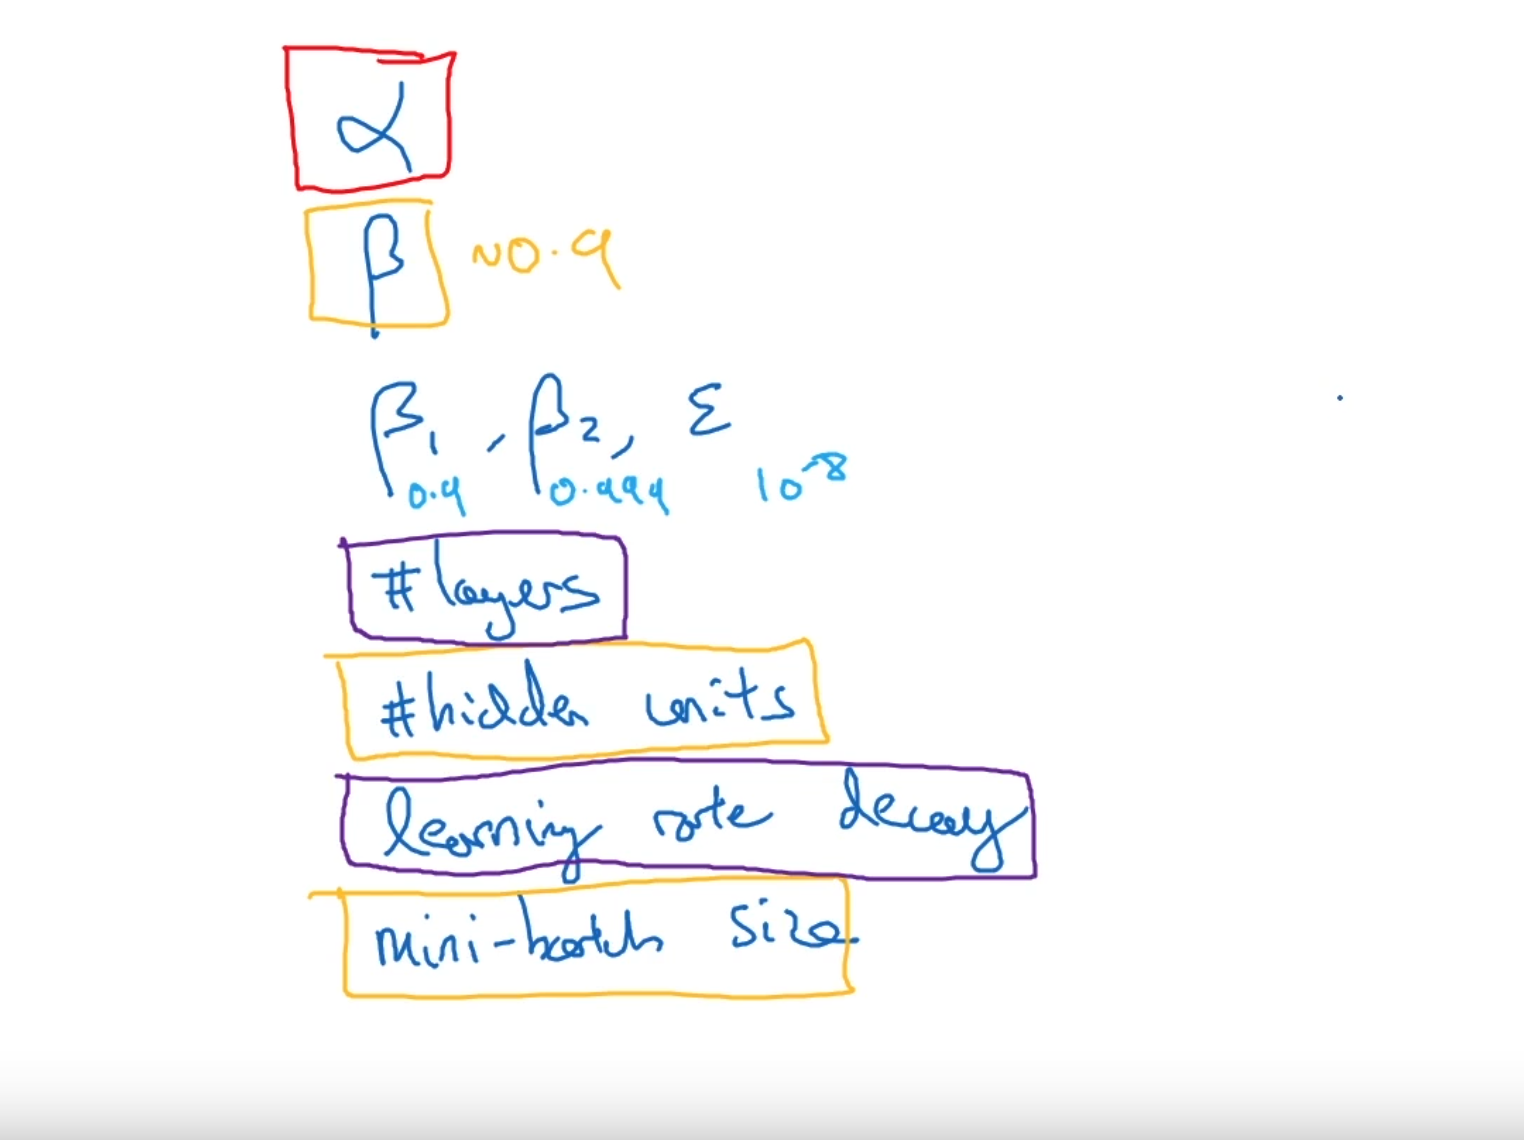 α
β ~0.9
β₁, β₂, ε
0.9 0.999 10⁻⁸
#layers
#hidden units
learning rate decay
mini-batch size